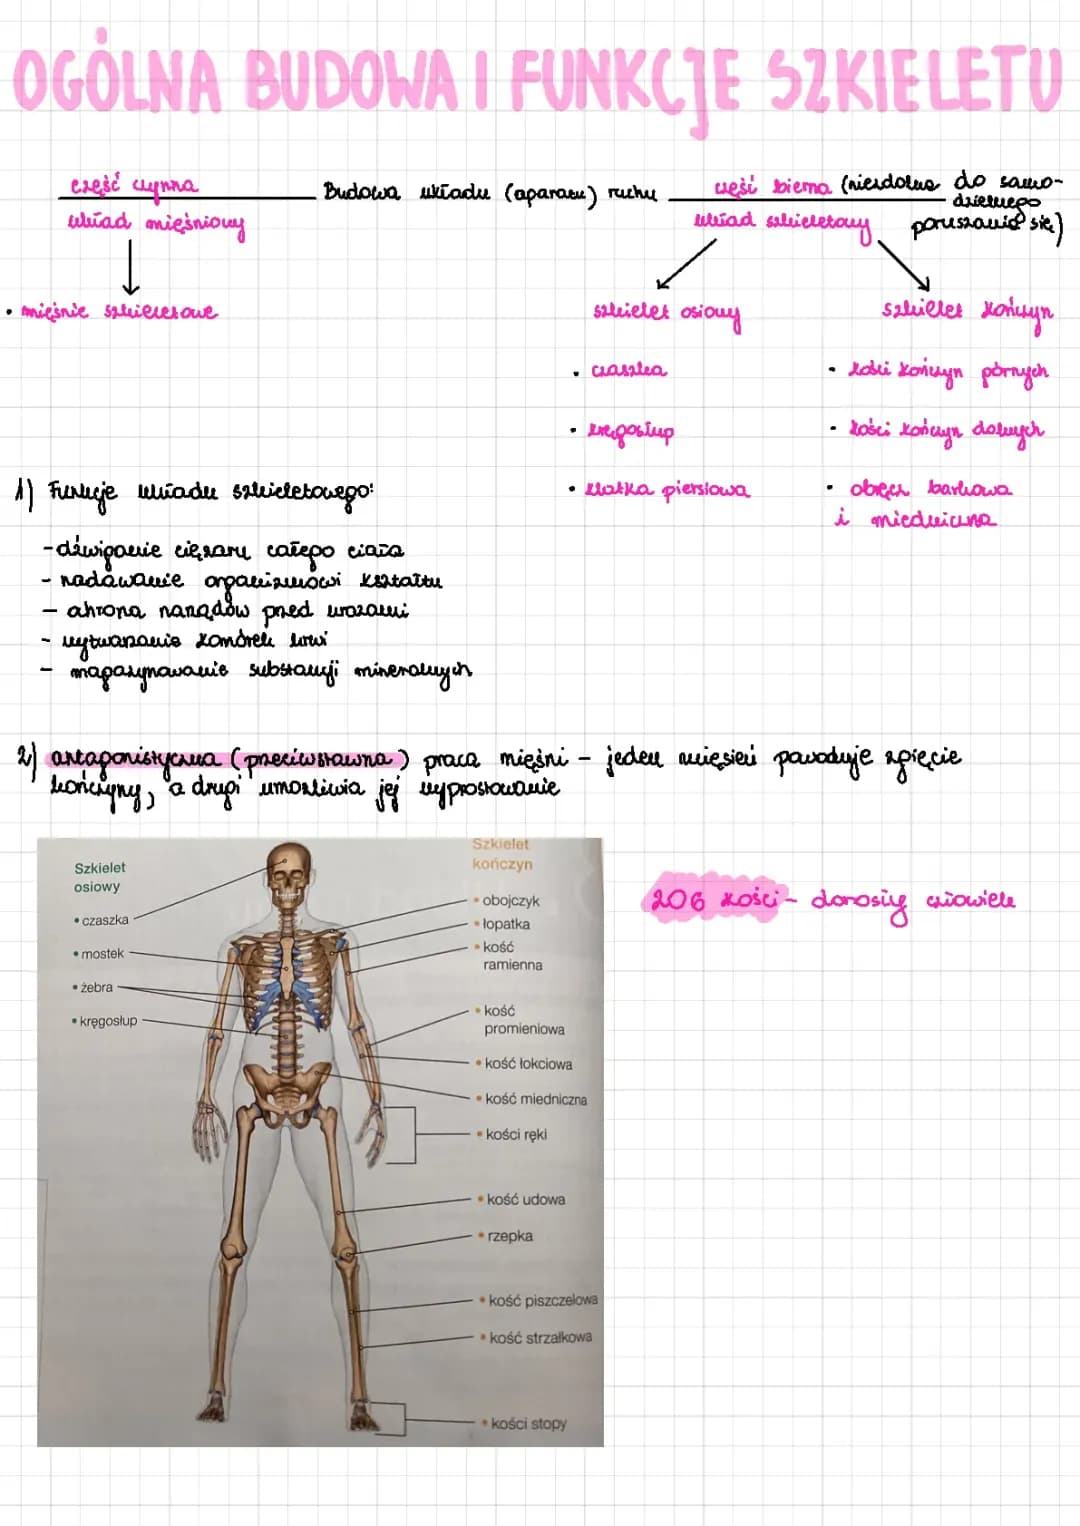 OGÓLNA BUDOWA I FUNKCJE SZKIELETU
część czynna
układ mięśniowy
Budowa układu (aparatu) ruchu
część bierna (niezdolna do samodzielnego poruszania się)
układ szkieletowy
• mięśnie szkieletowe
szkielet osiowy
szkielet kończyn
• czaszka
• kości kończyn górnych
• kręgosłup
• kości kończyn dolnych
• klatka piersiowa
• obręcz barkowa
i miedniczna
1) Funkcje układu szkieletowego:
- dźwiganie ciężaru całego ciała
- nadawanie organizmowi kształtu
- ochrona narządów przed urazami
- wytwarzanie komórek krwi
- magazynowanie substancji mineralnych
2) antagonistyczna (przeciwstawna) praca mięśni - jeden mięsień powoduje zgięcie
kończyny, a drugi umożliwia jej wyprostowanie
Szkielet
osiowy
• czaszka
• mostek
• żebra
• kręgosłup
Szkielet
kończyn
• obojczyk
• łopatka
• kość
ramienna
• kość
promieniowa
• kość łokciowa
• kość miedniczna
• kości ręki
• kość udowa
• rzepka
• kość piszczelowa
• kość strzałkowa
• kości stopy
206 kości - dorosły człowiek